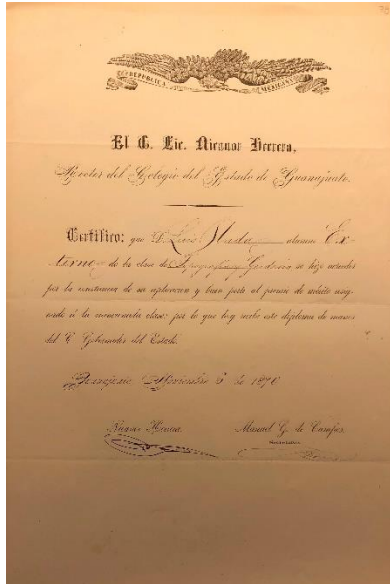 REPUBLICA MEXICANA
El C. Lic. Nicanor Herrera,
Rector del Colegio del Estado de Guanajuato.
Certifico: que D. Luis alumno Ex-
terno de la clase de Topografía y Geodesia se hizo acreedor
por la constancia de su aplicacion y buen porte al premio de mérito asig-
nado á la mencionada clase: por lo que hoy recibe este diploma de manos
del C. Gobernador del Estado.
Guanajuato, Noviembre 5 de 1876
Nicanor Herrera Manuel G. de